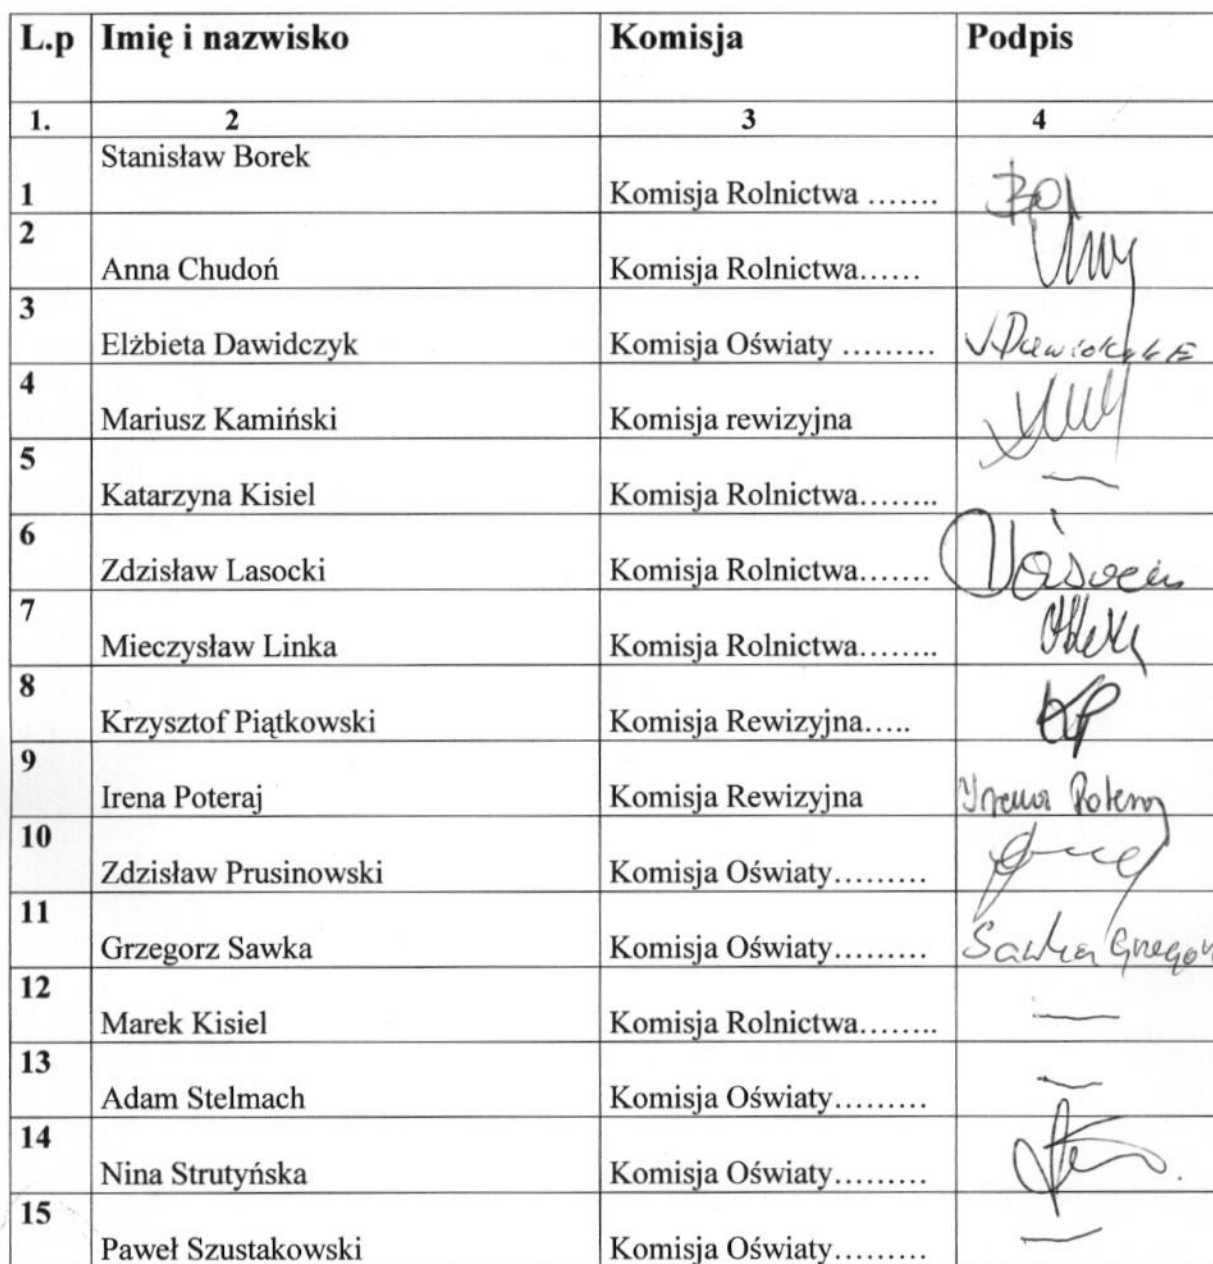 L.p Imię i nazwisko Komisja Podpis
1. 2 3 4
Stanisław Borek
1 Komisja Rolnictwa …….
2
Anna Chudoń Komisja Rolnictwa……
3
Elżbieta Dawidczyk Komisja Oświaty ………
4
Mariusz Kamiński Komisja rewizyjna
5
Katarzyna Kisiel Komisja Rolnictwa…….. —
6
Zdzisław Lasocki Komisja Rolnictwa…….
7
Mieczysław Linka Komisja Rolnictwa……..
8
Krzysztof Piątkowski Komisja Rewizyjna….. KP
9
Irena Poteraj Komisja Rewizyjna Irena Poteraj
10
Zdzisław Prusinowski Komisja Oświaty………
11
Grzegorz Sawka Komisja Oświaty……… Sawka Grzegorz
12
Marek Kisiel Komisja Rolnictwa…….. —
13
Adam Stelmach Komisja Oświaty……… —
14
Nina Strutyńska Komisja Oświaty………
15
Paweł Szustakowski Komisja Oświaty……… —